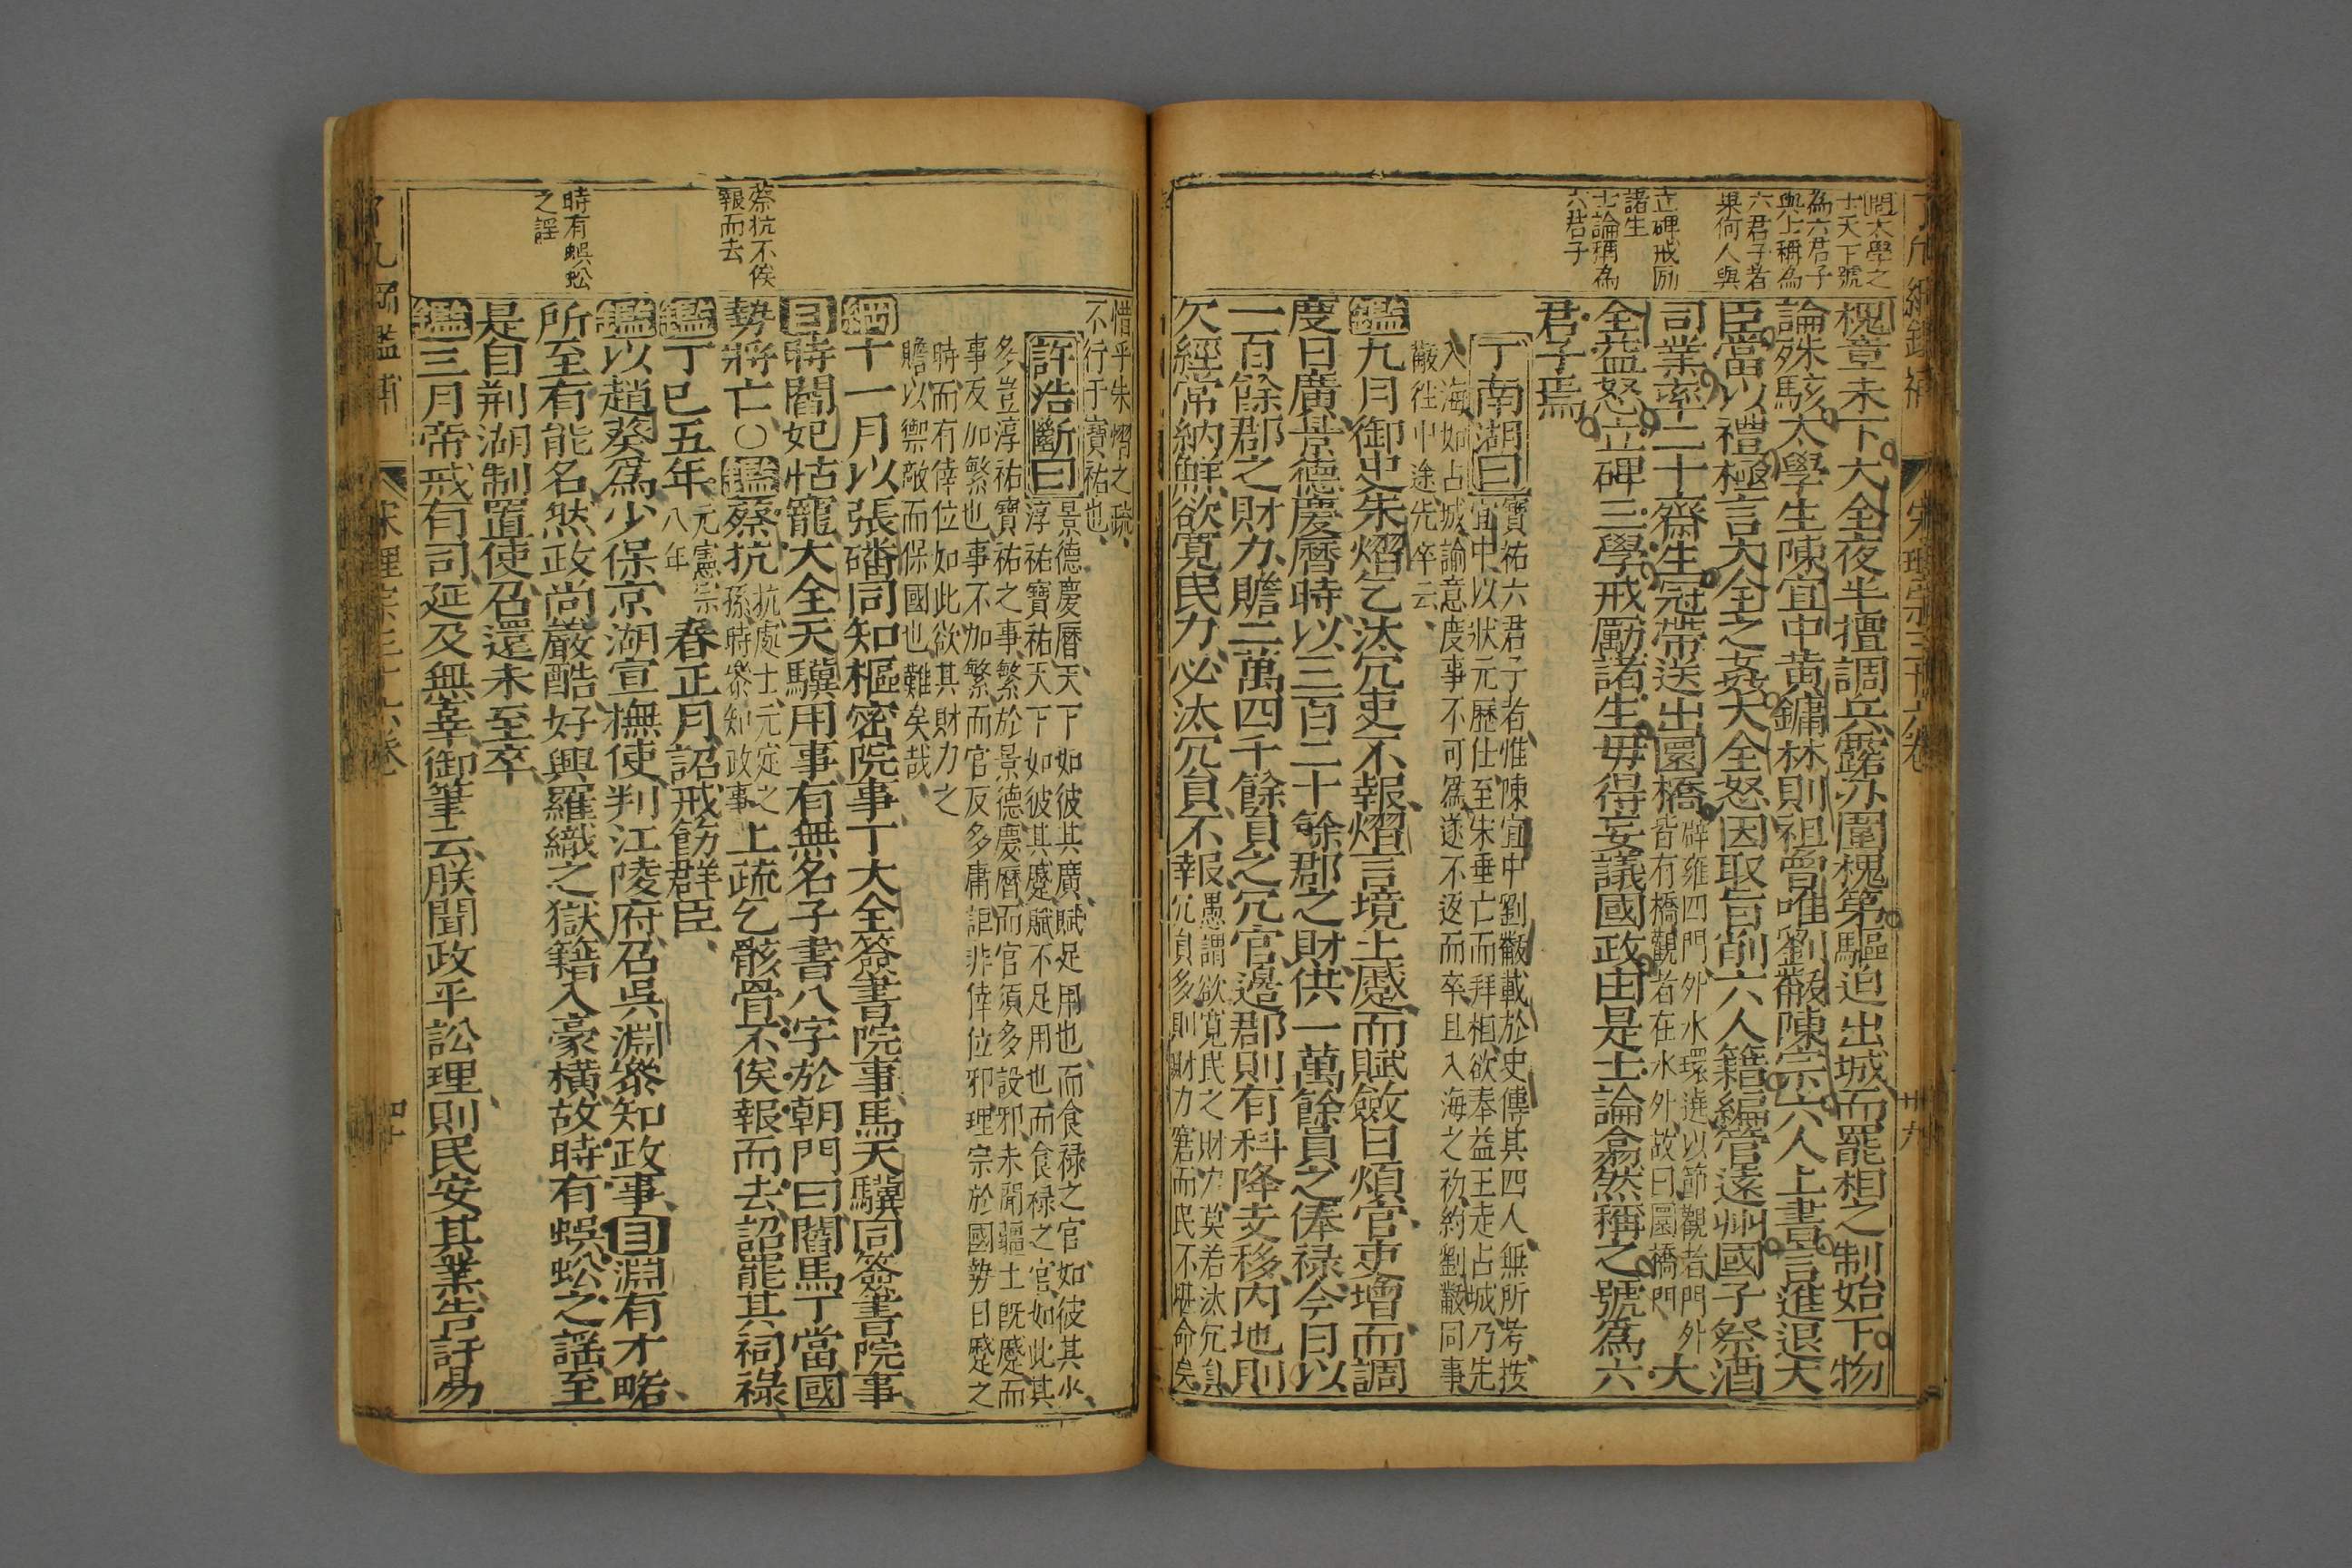 問太學之
士天下號
為六君子
與上稱為
六君子者
果何人與
立碑戒勵
諸生
士論稱為
六君子
槐章未下大全夜半擅調兵露刃圍槐第驅迫出城而罷相之制始下物
論殊駭太學生陳宜中黃鏞林則祖曾唯劉黻陳宗六人上書言進退大
臣當以禮極言大全之姦大全怒因取旨削六人籍編管遠州國子祭酒
司業率二十齋生冠帶送出圜橋辟雍四門外水環遶以節觀者門外
皆有橋觀者在水外故曰圜橋門大
全益怒立碑三學戒勵諸生毋得妄議國政由是士論翕然稱之號為六
君子焉
丁南湖曰寶祐六君子者惟陳宜中劉黻載於史傳其四人無所考按
宜中以狀元歷仕至宋垂亡而拜相欲奉益王走占城乃先
入海如占城諭意度事不可為遂不返而卒且入海之初約劉黻同事
黻往中途先卒云
鑑九月御史朱熠乞汰冗吏不報熠言境土蹙而賦斂日煩官吏增而調
度日廣景德慶曆時以三百二十餘郡之財供一萬餘員之俸祿今日以
一百餘郡之財力贍二萬四千餘員之冗官邊郡則有科降支移內地則
欠經常納解欲寬民力必汰冗員不報愚謂欲寬民之財力莫若汰冗員
冗員多則財力窘而民不堪命矣
惜乎朱熠之疏
不行于寶祐也
蔡抗不俟
報而去
時有蜈蚣
之謠
許浩斷曰景德慶曆天下如彼其廣賦足用也而食祿之官如彼其少
淳祐寶祐天下如彼其蹙賦不足用也而食祿之官如此其
多豈淳祐寶祐之事繁於景德慶曆而官須多設邪未聞疆土既蹙而
事反加繁也事不加繁而官反多庸詎非倖位邪理宗於國勢日蹙之
時而有倖位如此欲其財力之
贍以禦敵而保國也難矣哉
綱十一月以張磻同知樞密院事丁大全簽書院事馬天驥同簽書院事
目時閻妃怙寵大全天驥用事有無名子書八字於朝門曰閻馬丁當國
勢將亡○鑑蔡抗抗處士元定之
孫時參知政事上疏乞骸骨不俟報而去詔罷其祠祿
鑑丁巳五年元憲宗
八年春正月詔戒飭群臣
鑑以趙葵為少保京湖宣撫使判江陵府召吳淵參知政事目淵有才略
所至有能名然政尚嚴酷好興羅織之獄籍入豪橫故時有蜈蚣之謠至
是自荊湖制置使召還未至卒
鑑三月帝戒有司延及無辜御筆云朕聞政平訟理則民安其業告訐易